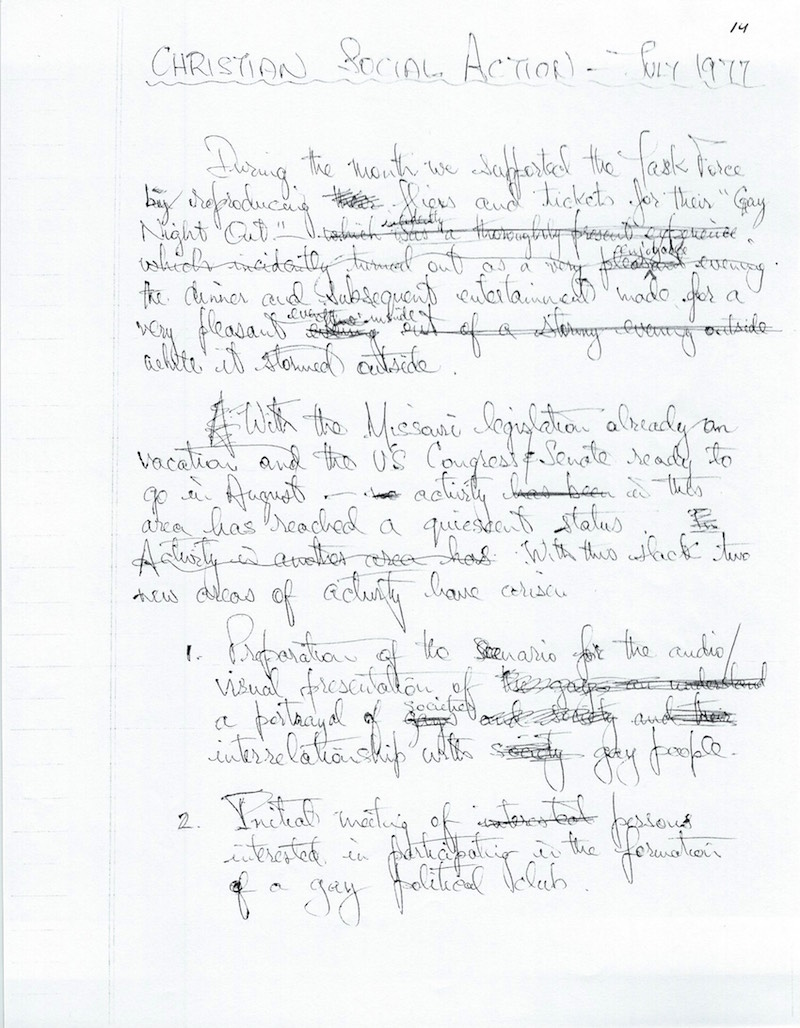 14
CHRISTIAN SOCIAL ACTION - JULY 1977
During the month we supported the Task Force
by reproducing fliers and tickets for their "Gay
Night Out" which was a thoroughly present experience
incidently
which incidently turned out as a very pleasant evening.
enjoyable
the dinner and subsequent entertainment made for a
very pleasant evening out of a stormy evening outside
evening inside
while it stormed outside.
With the Missouri legislation already on
vacation and the US Congress & Senate ready to
go in August - activity has been in this
area has reached a quiescent status.
Activity in another area has With this slack two
new areas of activity have arisen
1. Preparation of the Scenario for the audio/
visual presentation of the gays an understand
a portrayal of gays and society and their
societies
interrelationship with society gay people.
2. Initial meeting of interested persons
interested in participating in the formation
of a gay political club.